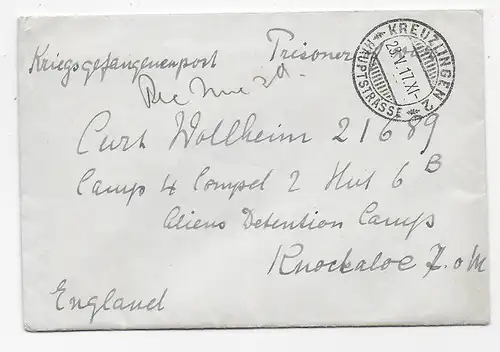 Kriegsgefangenenpost Prisoner
KREUZLINGEN 2
29.V.17.XI
HAUPTSTRASSE
Rec June 3rd
Curt Wollheim 21689
Camp 4 Compd 2 Hut 6 B
Aliens Detention Camp
Knockaloe I.o.M
England